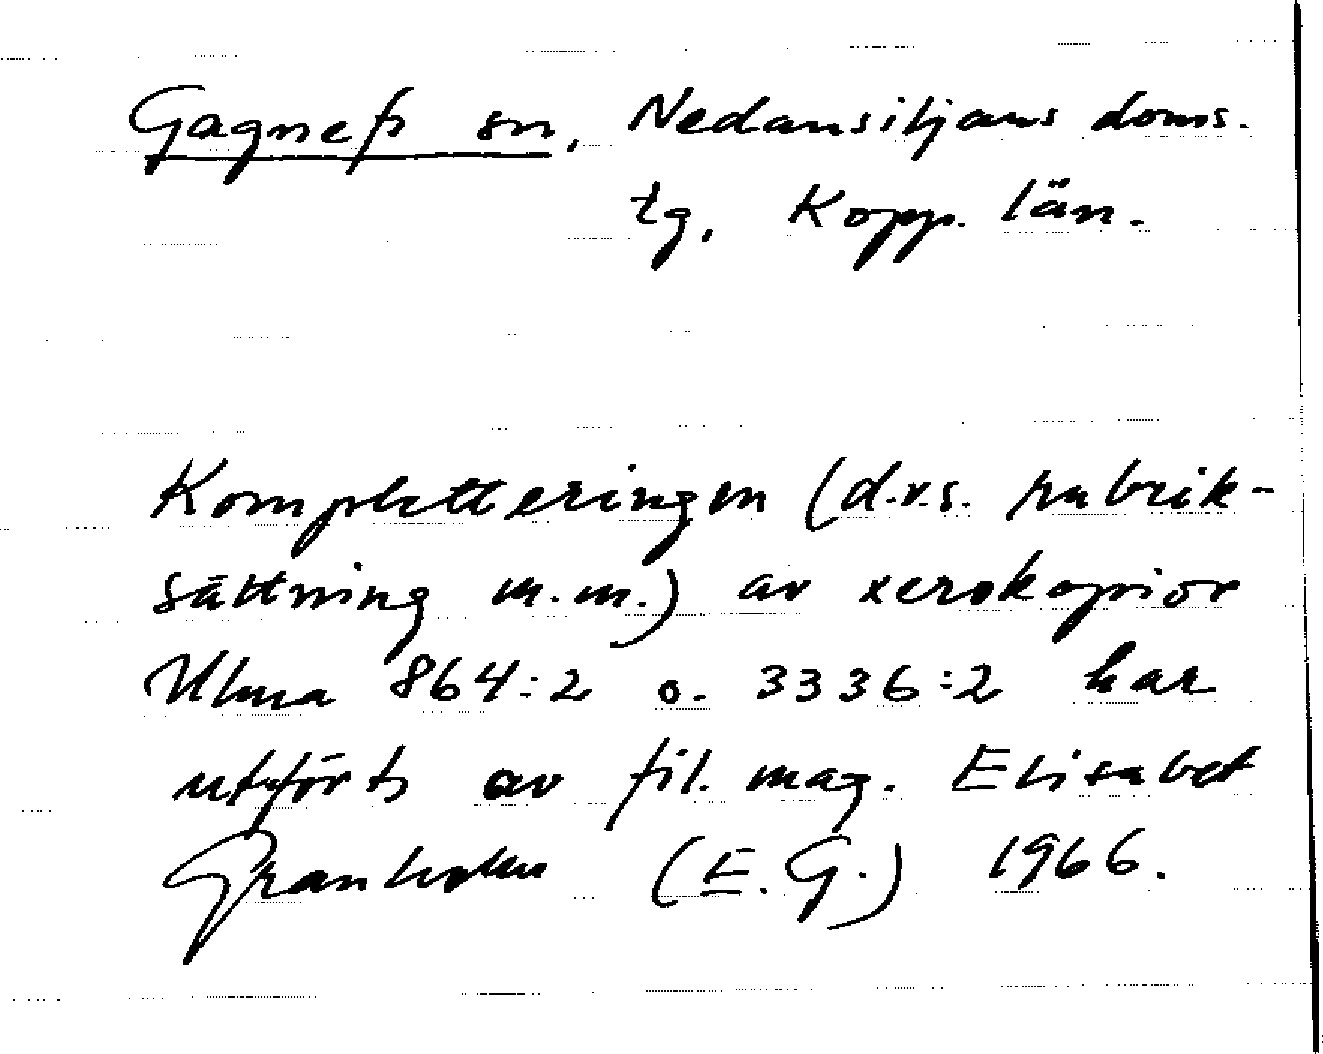 Gagnefs sn, Nedansiljans doms.
tg, Kopp. län.
Kompletteringen (d.v.s. rubrik-
sättning m.m.) av xerokopior
Ulma 864:2 o. 3336:2 har
utförts av fil. mag. Elisabet
Granholm (E.G.) 1966.